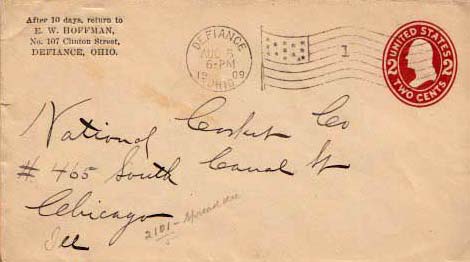 After 10 days, return to
E. W. HOFFMAN,
No. 107 Clinton Street,
DEFIANCE, OHIO.
DEFIANCE
AUG 5
6-PM
1909
OHIO
1
UNITED STATES
2 2
TWO CENTS
National Casket Co
# 465 South Canal St
Chicago
Ill
2101 -